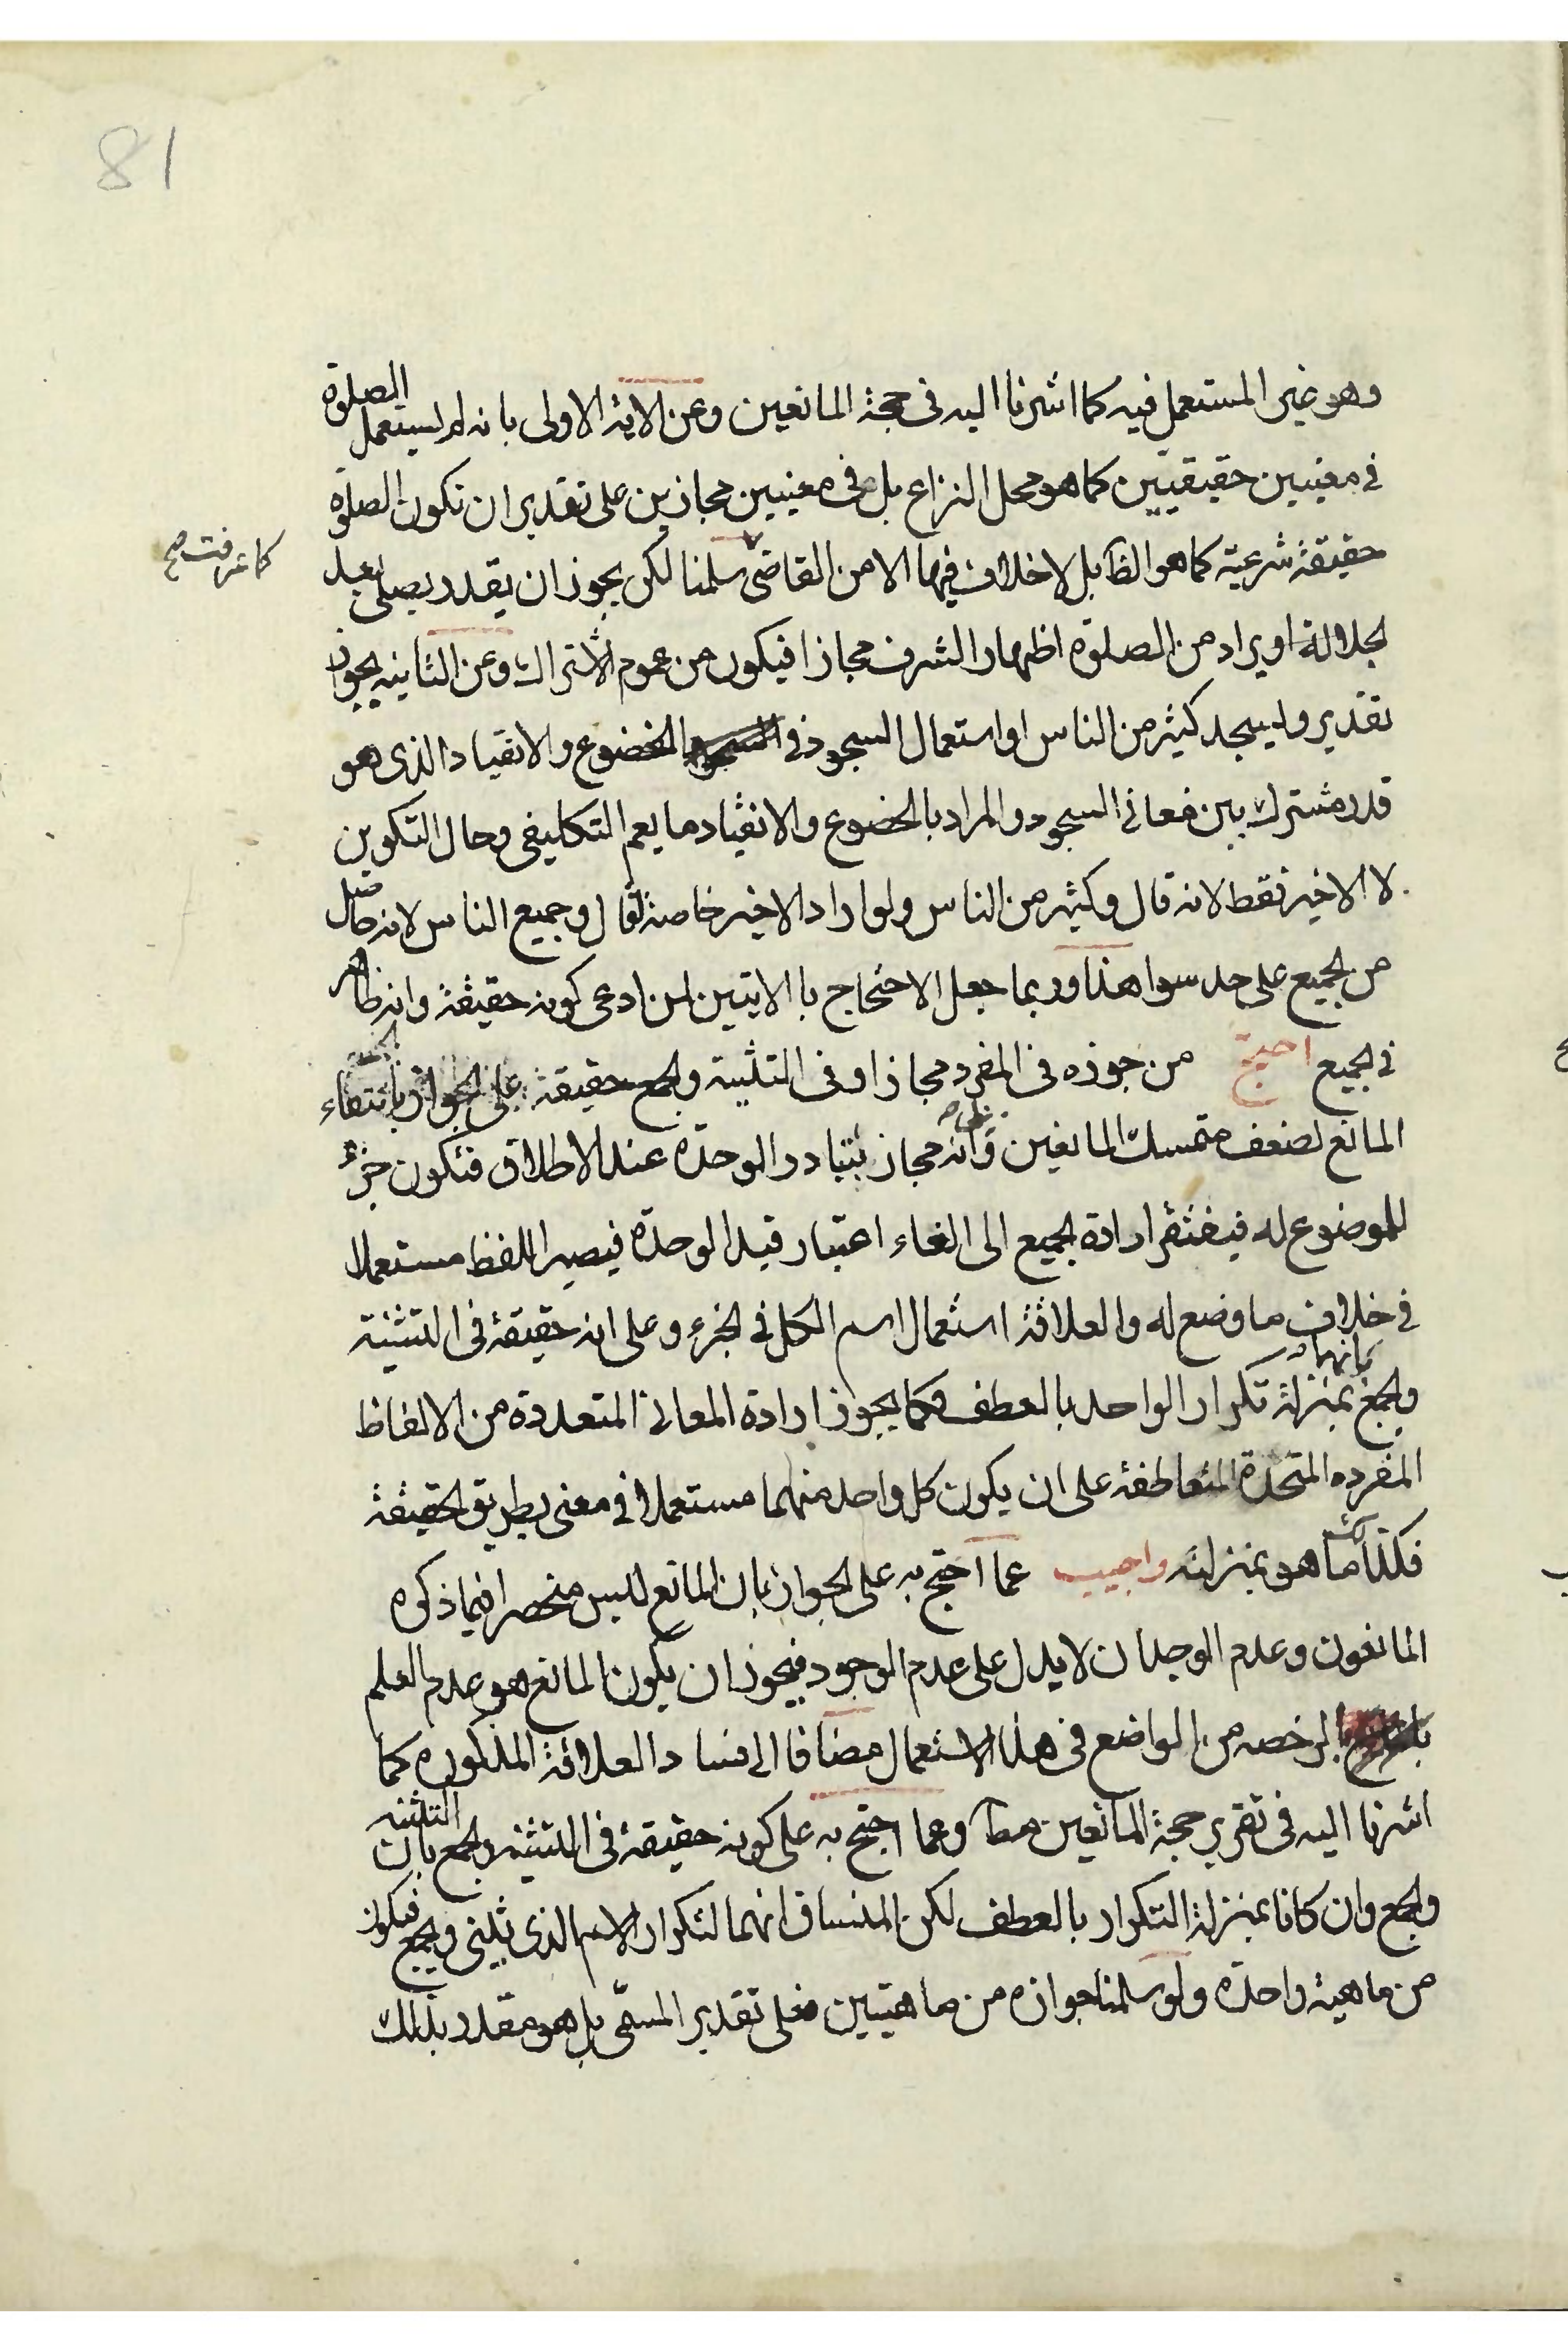 81
وهو غير المستعمل فيه كما اشرنا اليه فى حجة المانعين وعن الاية الاولى بانه لم يستعمل الصلوة
فى معنيين حقيقيين كما هو محل النزاع بل فى معنيين مجازين على تقدير ان تكون الصلوة
حقيقة شرعية كما هو الظ بل لا خلاف فيها الا من القاضى سلمنا لكن يجوز ان يقدر يصلى بعد
كما عرفت صح
الجلالة او يراد من الصلوة اظهار الشرف مجازا فيكون من عموم الاشتراك وعن الثانيه بجواز
تقدير وليسجد كثير من الناس او استعمال السجود فى الخضوع والانقياد الذى هو
قدر مشترك بين معانى السجود والمراد بالخضوع والانقياد ما يعم التكليفى وحال التكوين
لا الاخير فقط لانه قال وكثير من الناس ولو اراد الاخير خاصة لقال وجميع الناس لانه حاصل
من الجميع على حد سوا هذا وربما جعل الاحتجاج بالايتين لمن ادعى كونه حقيقة وانه ظاهر
فى الجميع احتج من جوزه فى المفرد مجازا وفى التثنية والجمع حقيقة على الجواز بانتفاء
المانع لضعف متمسك المانعين وانه مجاز بتبادر الوحدة عند الاطلاق فتكون جزء
للموضوع له فيفتقر ارادة الجميع الى الغاء اعتبار قيد الوحدة فيصير اللفظ مستعملا
فى خلاف ما وضع له والعلاقة استعمال اسم الكل فى الجزء وعلى انه حقيقة فى التثنية
والجمع بانهما بمنزلة تكرار الواحد بالعطف فكما يجوز ارادة المعانى المتعددة من الالفاظ
المفرده المتحدة المتعاطفة على ان يكون كل واحد منهما مستعملا فى معنى بطريق الحقيقة
فكذا ما هو بمنزلته واجيب عما احتج به على الجواز بان المانع ليس منحصرا فيما ذكره
المانعون وعدم الوجدان لا يدل على عدم الوجود فيجوز ان يكون المانع هو عدم العلم
بالرخصه من الواضع فى هذا الاستعمال مضافا الى فساد العلاقة المذكوره كما
اشرنا اليه فى تقرير حجة المانعين مط وعما احتج به على كونه حقيقة فى التثنيه والجمع بان التثنيه
والجمع وان كانا بمنزلة التكرار بالعطف لكن المنساق انهما لتكرار الاسم الذى يثنى ويجمع فيكونان
من ماهية واحدة ولو سلمنا جوازه من ماهيتين فعلى تقدير المسمى بل هو مقدر بذلك